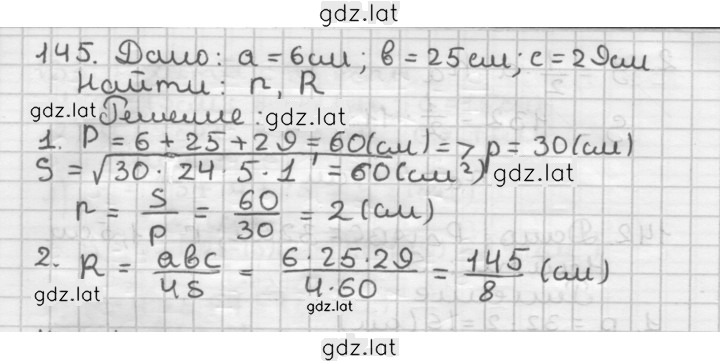 gdz.lat
145. Дано: a = 6 см; b = 25 см; c = 29 см
Найти: r, R
gdz.lat Решение: gdz.lat
1. P = 6 + 25 + 29 = 60 (см) => p = 30 (см)
S = √30 · 24 · 5 · 1 = 60 (см²) gdz.lat
r = S/p = 60/30 = 2 (см)
2. R = abc/4S = 6·25·29/4·60 = 145/8 (см)
gdz.lat gdz.lat
gdz.lat